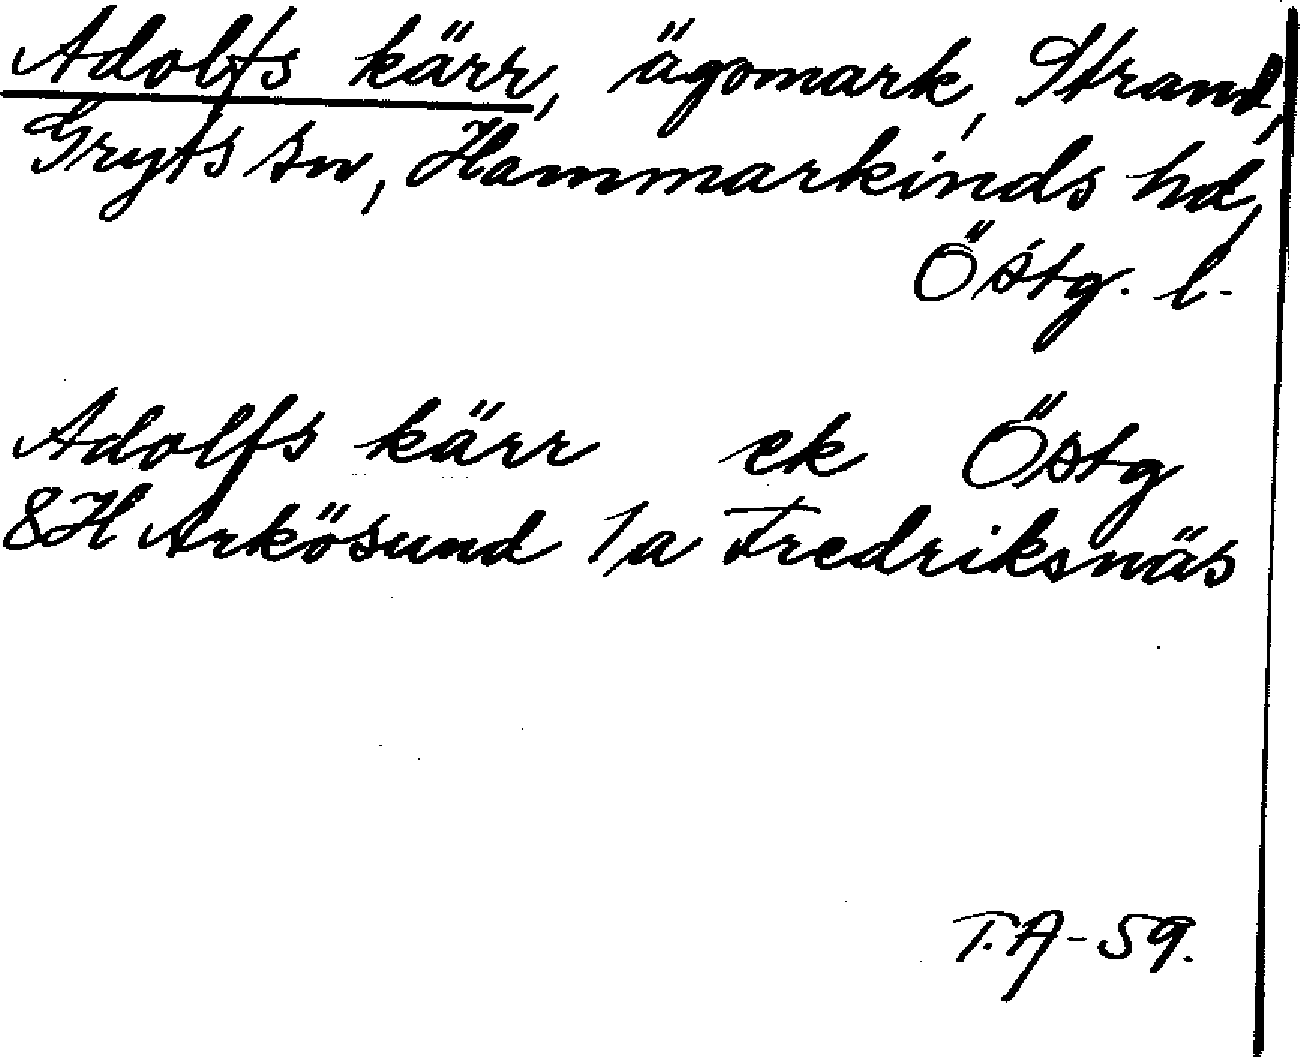 Adolfs kärr, ägomark, Strand,
Gryts sn, Hammarkinds hd,
Östg. l.
Adolfs kärr ek Östg
8H Arkösund 1/a Fredriksnäs
T.A-59.